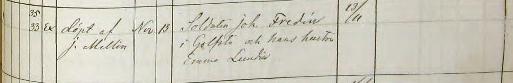 35
33 Ex Döpt af Nov 13 Soldaten Joh. Fredin 13/11
J. Mellin i Galfsta och hans hustru
Emma Lundin